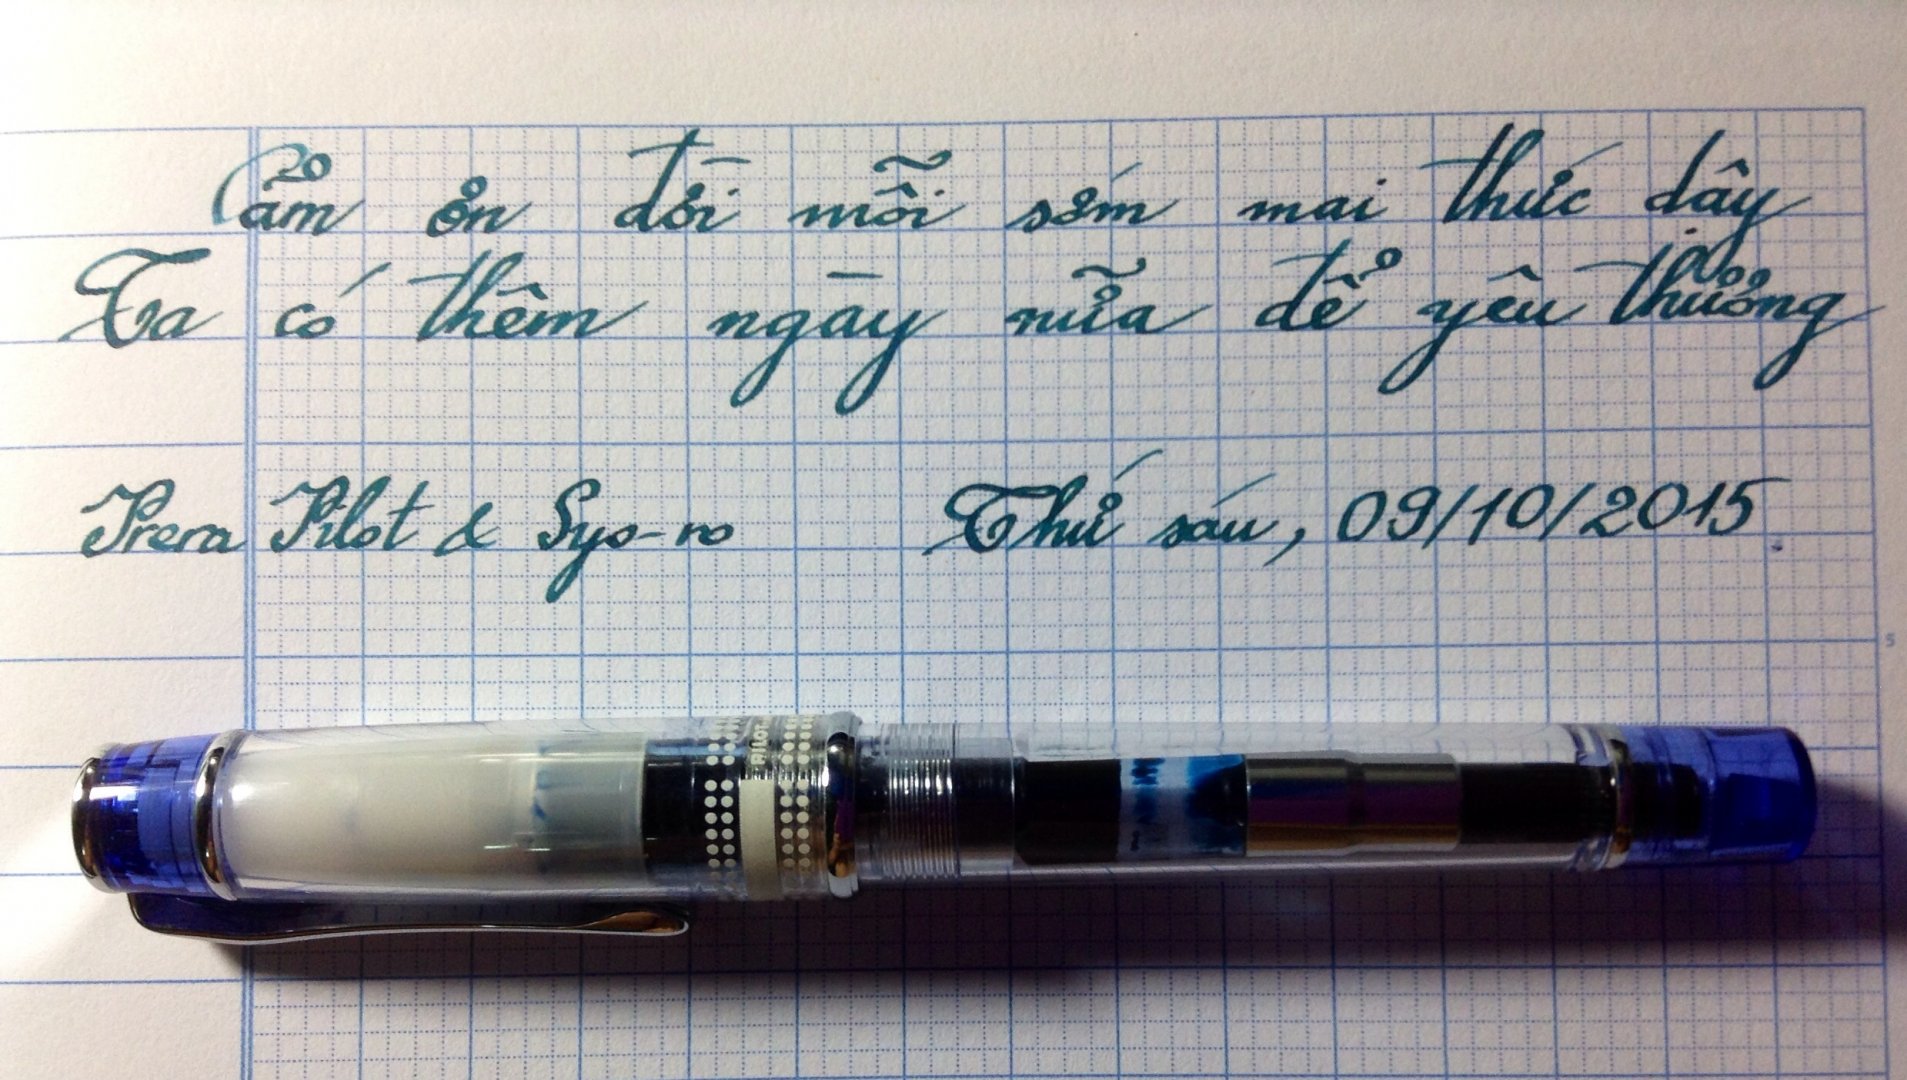 Cảm ơn đời mỗi sớm mai thức dậy
Ta có thêm ngày nữa để yêu thương
Prera Pilot & Syo-ro Thứ sáu, 09/10/2015
5
PILOT